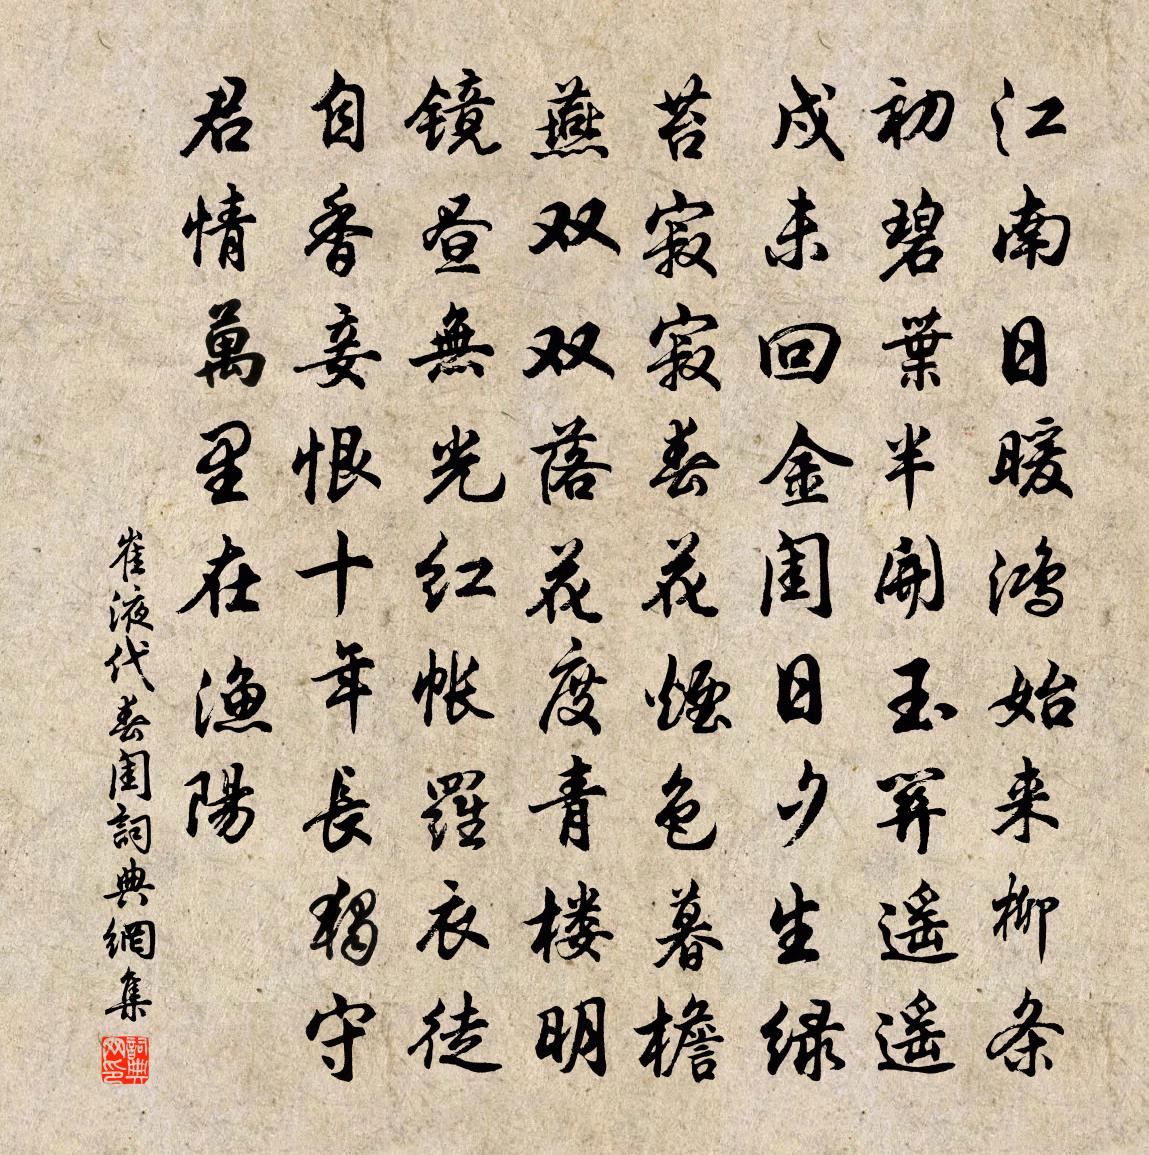 江南日暖鸿始来柳条
初碧葉半開玉关遥遥
戍未回金闺日夕生绿
苔寂寂春花煙色暮檐
燕双双落花度青楼明
镜昼無光红帐羅衣徒
自香妾恨十年長獨守
君情萬里在渔陽
崔液代春闺詞典網集
詞典网印